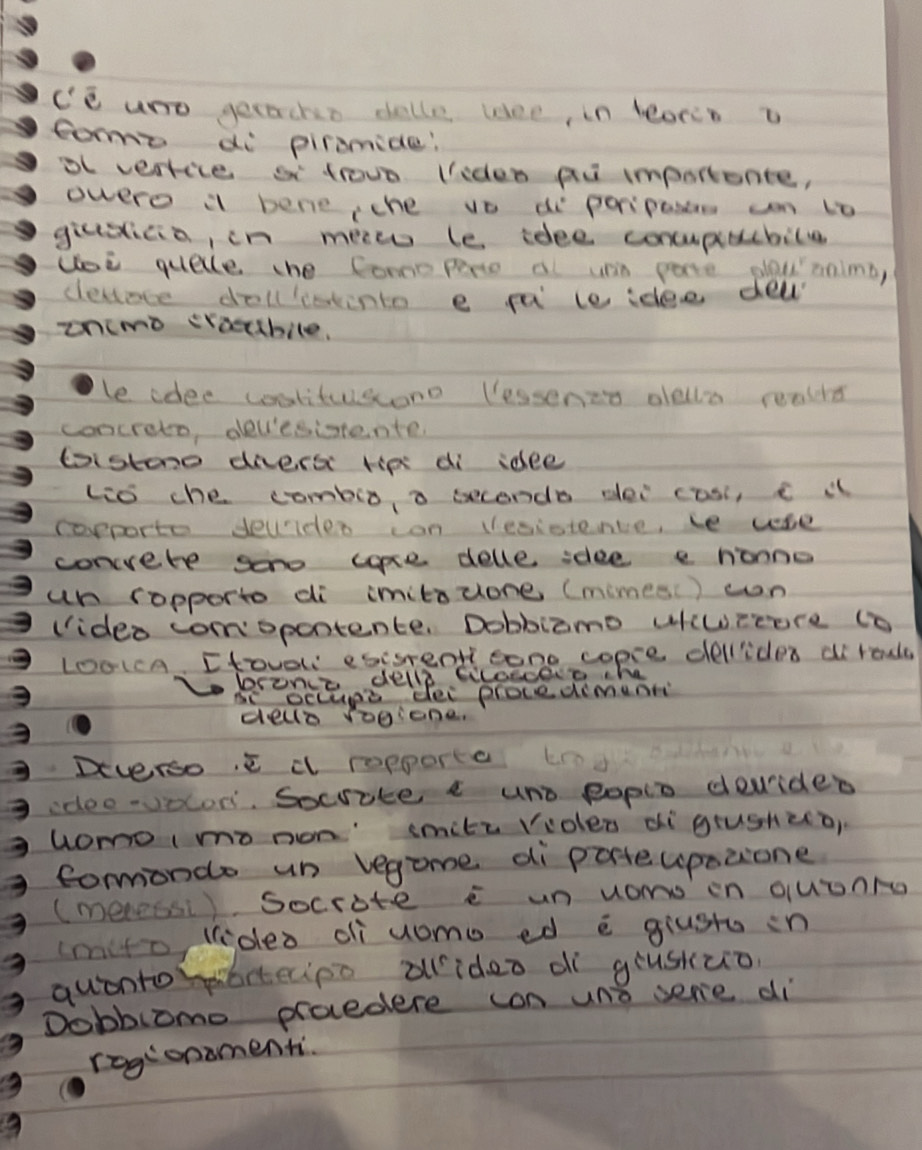 C'è una gerarchia delle idee, in teoria a
forma di piramide:
al vertice si trova l'idea più importante,
ovvero il bene, che va di paripasso con la
giustizia, in mezzo le idee concupiscibile
cioè quelle che fanno parte di una parte dell'anima,
dell'istinto e più le idee dell'
anima irascibile.
le idee costituiscono l'essenza della realtà
concreta, dell'esistente.
Esistono diversi tipi di idee
Ciò che cambia, a seconda dei casi, è il
rapporto dell'idea con l'esistente. le cose
concrete sono copie delle idee e hanno
un rapporto di imitazione (mimesi) con
l'idea corrispontente. Dobbiamo utilizzare la
LOGICA. I tavoli esistenti sono copie dell'idea di tavolo
branca della filosofia che
si occupa dei procedimenti
della ragione.
Diverso è il rapporto
idee-valori. Socrate è una copia dell'idea
uomo, ma non imita l'idea di giustizia,
formando un legame di partecipazione
(metessi). Socrate è un uomo in quanto
imita l'idea di uomo ed è giusto in
quanto partecipa all'idea di giustizia.
Dobbiamo procedere con una serie di
ragionamenti.